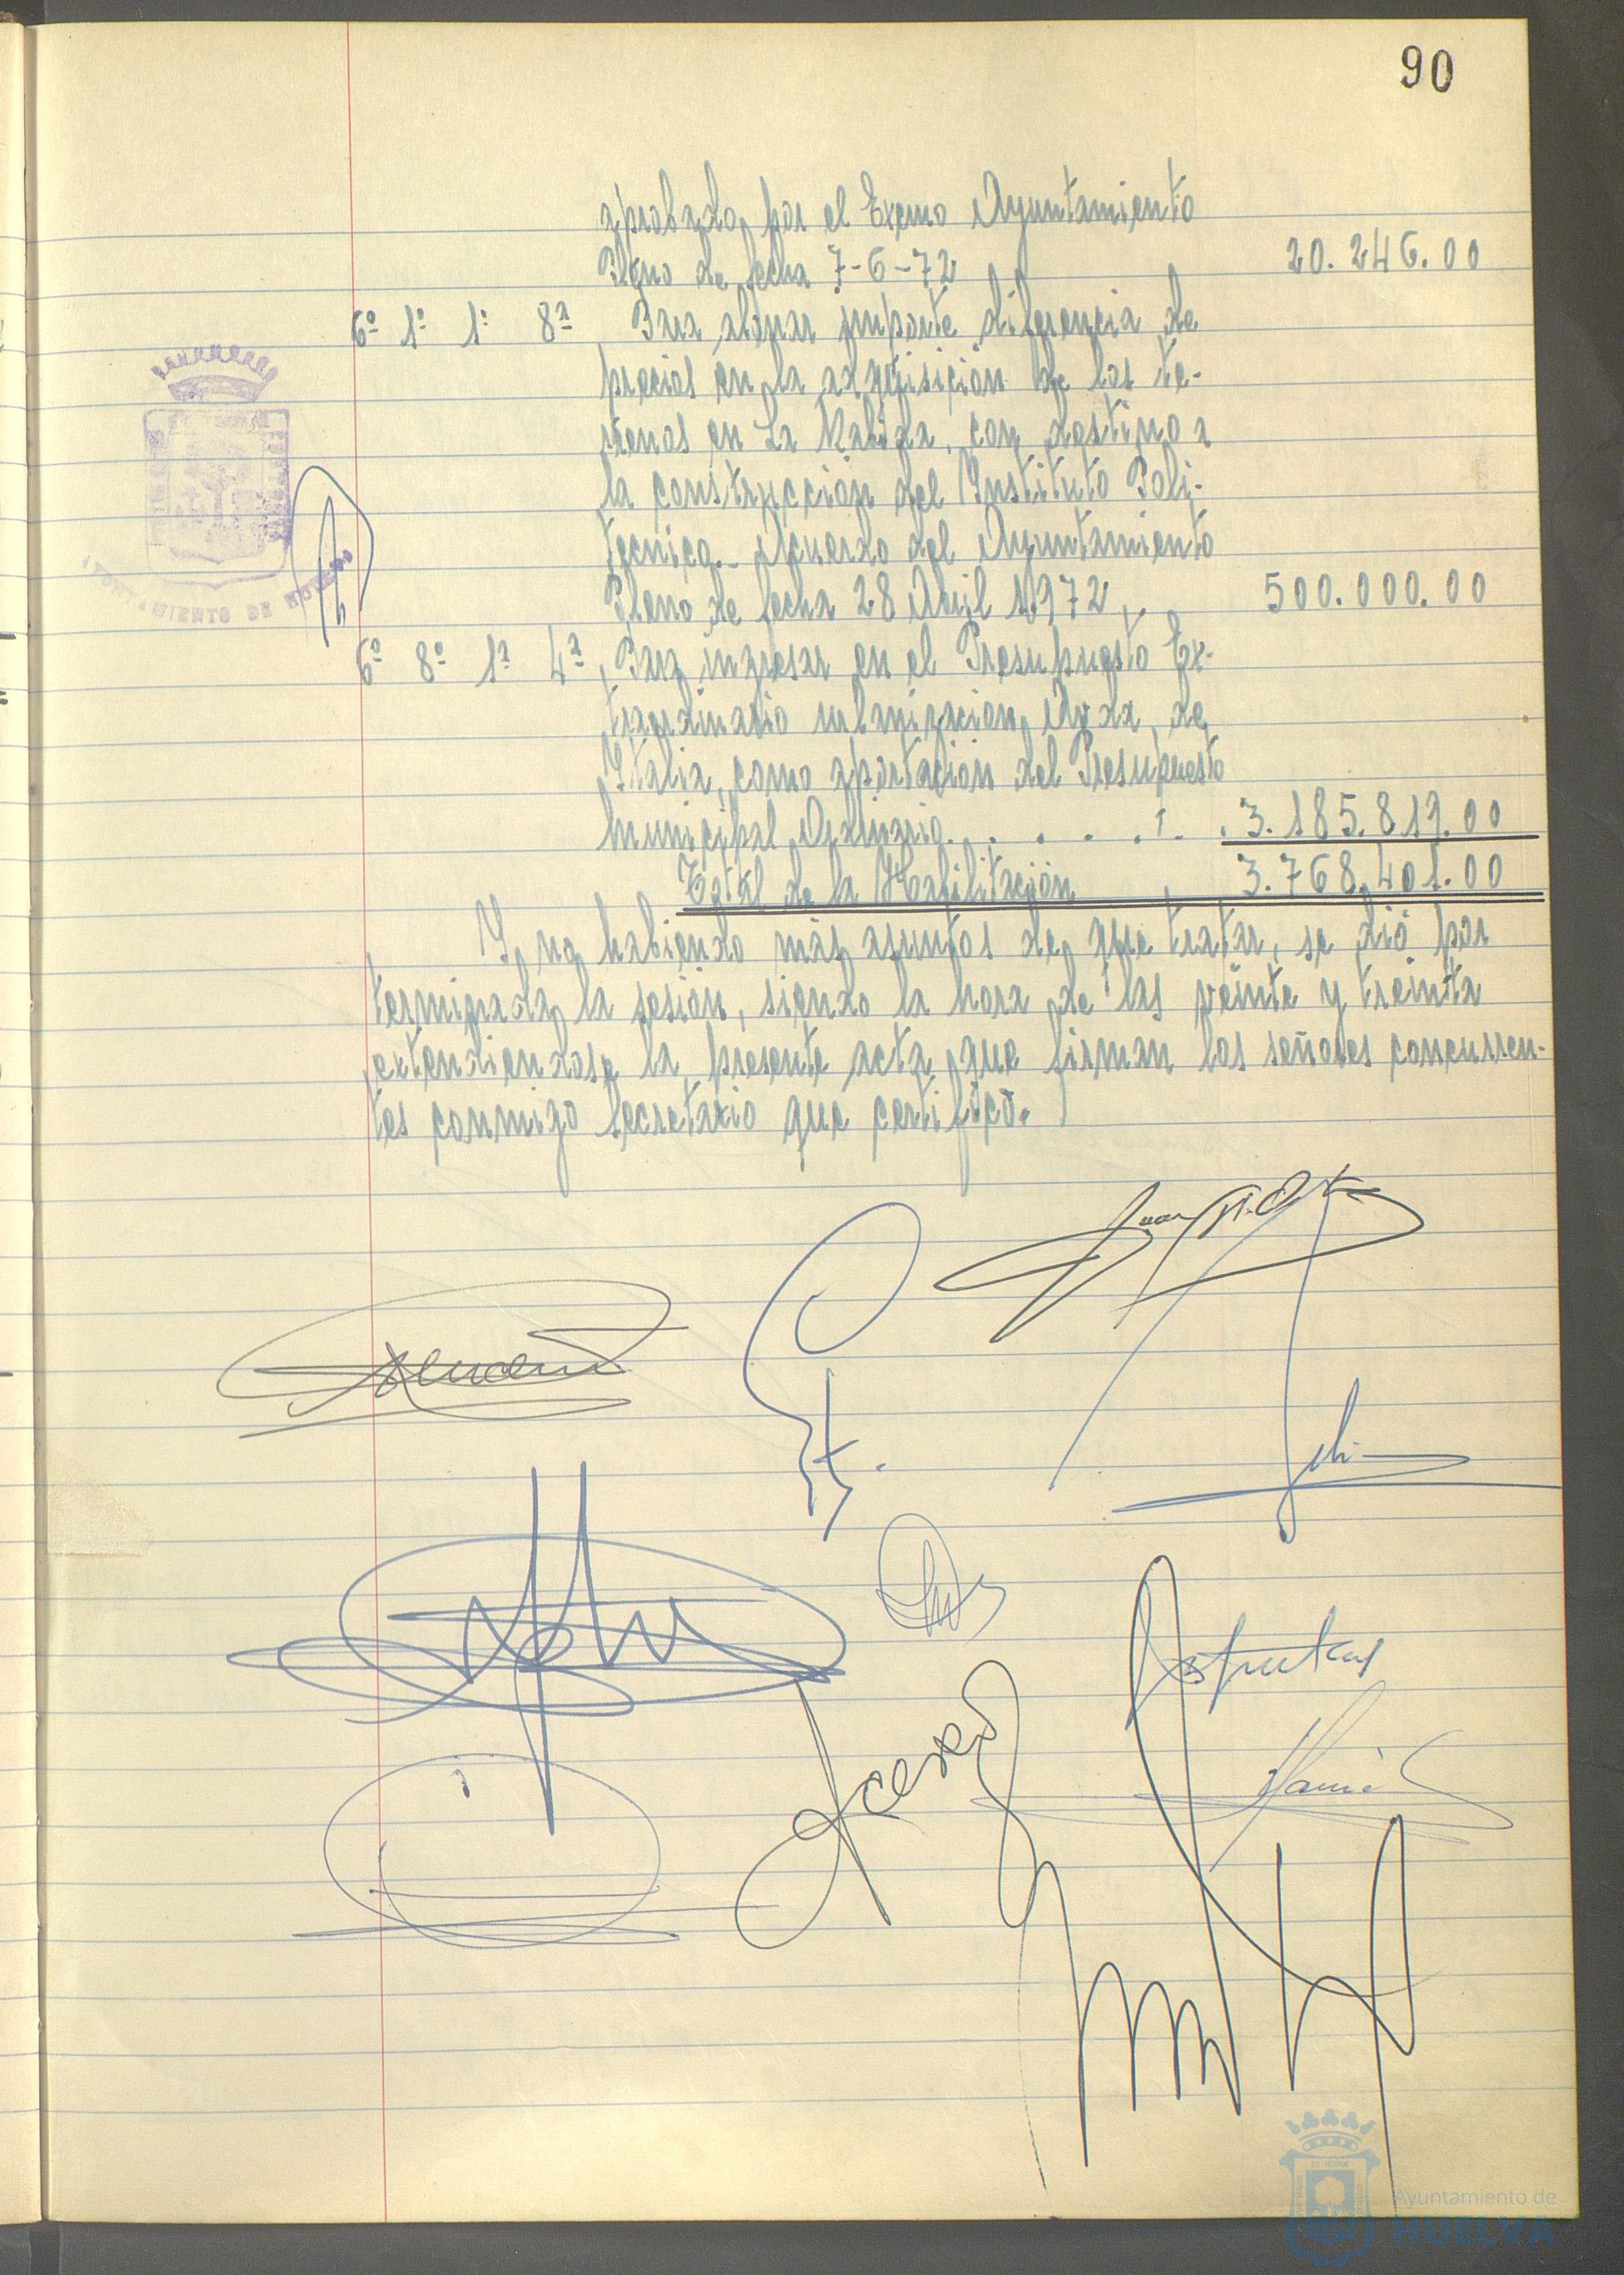 90
aprobado, por el Excmo Ayuntamiento
Pleno de fecha 7-6-72 20.246.00
6º 1º 1º 8ª Para abonar importe diferencia de
precios en la adquisición de los te-
rrenos en La Rabida, con destino a
la construcción del Instituto Poli-
tecnico.- Acuerdo del Ayuntamiento
Pleno de fecha 28 Abril 1972, 500.000.00
6º 8º 1ª 4ª, Para ingresar en el Presupuesto Ex-
traordinario urbanizacion Avda, de
Italia, como aportación del Presupuesto
Municipal Ordinario. . . . . . . 3.185.819.00
Total de la Habilitación 3.768.401.00
Y, no habiendo más asuntos de que tratar, se dió por
terminada, la sesión, siendo la hora de las veinte y treinta
extendiendose la, presente acta, que firman los señores concurren-
tes conmigo Secretario que certifico.
Acevedo
Ayuntamiento de
HUELVA